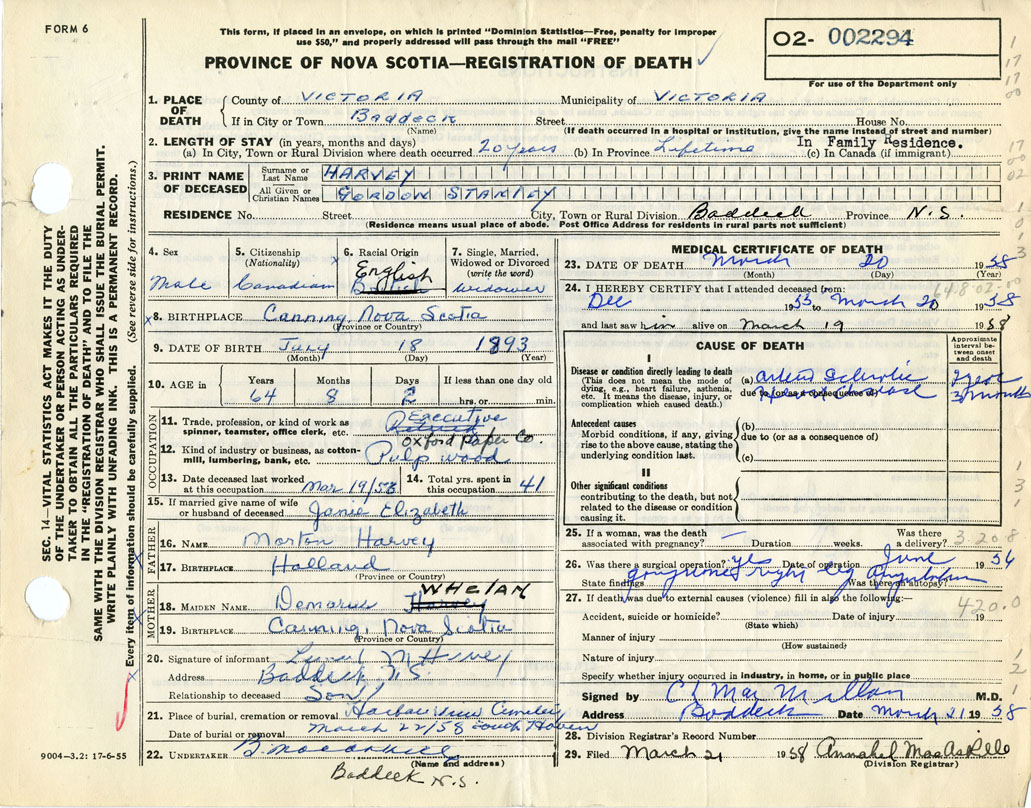 FORM 6
This form, if placed in an envelope, on which is printed "Dominion Statistics—Free, penalty for improper
use $50," and properly addressed will pass through the mail "FREE"
PROVINCE OF NOVA SCOTIA—REGISTRATION OF DEATH
02- 002294
For use of the Department only
SEC. 14—VITAL STATISTICS ACT MAKES IT THE DUTY
OF THE UNDERTAKER OR PERSON ACTING AS UNDER-
TAKER TO OBTAIN ALL THE PARTICULARS REQUIRED
IN THE "REGISTRATION OF DEATH" AND TO FILE THE
SAME WITH THE DIVISION REGISTRAR WHO SHALL ISSUE THE BURIAL PERMIT.
WRITE PLAINLY WITH UNFADING INK. THIS IS A PERMANENT RECORD.
Every item of information should be carefully supplied. (See reverse side for instructions.)
1. PLACE OF DEATH
County of VICTORIA Municipality of VICTORIA
If in City or Town Baddeck Street House No.
(Name) (If death occurred in a hospital or institution, give the name instead of street and number)
2. LENGTH OF STAY (in years, months and days) In Family Residence.
(a) In City, Town or Rural Division where death occurred 20 years (b) In Province Lifetime (c) In Canada (if immigrant)
3. PRINT NAME OF DECEASED
Surname or Last Name HARVEY
All Given or Christian Names GORDON STANLEY
RESIDENCE No. Street City, Town or Rural Division Baddeck Province N.S.
(Residence means usual place of abode. Post Office Address for residents in rural parts not sufficient)
4. Sex 5. Citizenship 6. Racial Origin 7. Single, Married,
(Nationality) English Widowed or Divorced
(write the word)
Male Canadian widower
x8. BIRTHPLACE Canning, Nova Scotia
(Province or Country)
9. DATE OF BIRTH July 18 1893
(Month) (Day) (Year)
10. AGE in Years Months Days If less than one day old
64 8 2 hrs. or min.
OCCUPATION
11. Trade, profession, or kind of work as Executive
spinner, teamster, office clerk, etc.
Oxford Paper Co.
12. Kind of industry or business, as cotton-
mill, lumbering, bank, etc. Pulp wood
13. Date deceased last worked 14. Total yrs. spent in
at this occupation Mar 19/58 this occupation 41
15. If married give name of wife
or husband of deceased Janie Elizabeth
FATHER
16. NAME Morton Harvey
17. BIRTHPLACE Holland
(Province or Country)
MOTHER
WHELAN
18. MAIDEN NAME Harvey
19. BIRTHPLACE Canning, Nova Scotia
(Province or Country)
20. Signature of informant
Address Baddeck N.S.
Relationship to deceased Son
21. Place of burial, cremation or removal Cemetery
Date of burial or removal March 22/58 South Haven
22. UNDERTAKER
(Name and address)
Baddeck N.S.
9004—3.2: 17-6-55
MEDICAL CERTIFICATE OF DEATH
23. DATE OF DEATH March 20 1958
(Month) (Day) (Year)
64.8.02-00
24. I HEREBY CERTIFY that I attended deceased from:
Dec 1955 to March 20 1958
and last saw him alive on March 19 1958
CAUSE OF DEATH
Approximate interval be-tween onset and death
I
Disease or condition directly leading to death
(This does not mean the mode of dying, e.g., heart failure, asthenia, etc. It means the disease, injury, or complication which caused death.)
(a) Arterio Sclerotic
due to (or as a consequence of)
Antecedent causes
Morbid conditions, if any, giving rise to the above cause, stating the underlying condition last.
(b)
due to (or as a consequence of)
(c)
II
Other significant conditions
contributing to the death, but not related to the disease or condition causing it.
25. If a woman, was the death Was there 3-208
associated with pregnancy? Duration weeks. a delivery?
26. Was there a surgical operation? yes Date of operation June 1956
State findings gangrene right leg Amputation Was there an autopsy?
27. If death was due to external causes (violence) fill in also the following:— 420.0
Accident, suicide or homicide? Date of injury 19
(State which)
Manner of injury
(How sustained)
Nature of injury
Specify whether injury occurred in industry, in home, or in public place
Signed by C L MacMillan M.D.
Address Baddeck Date March 21 1958
28. Division Registrar's Record Number
29. Filed March 21 1958 Annabel MacAskill
(Division Registrar)